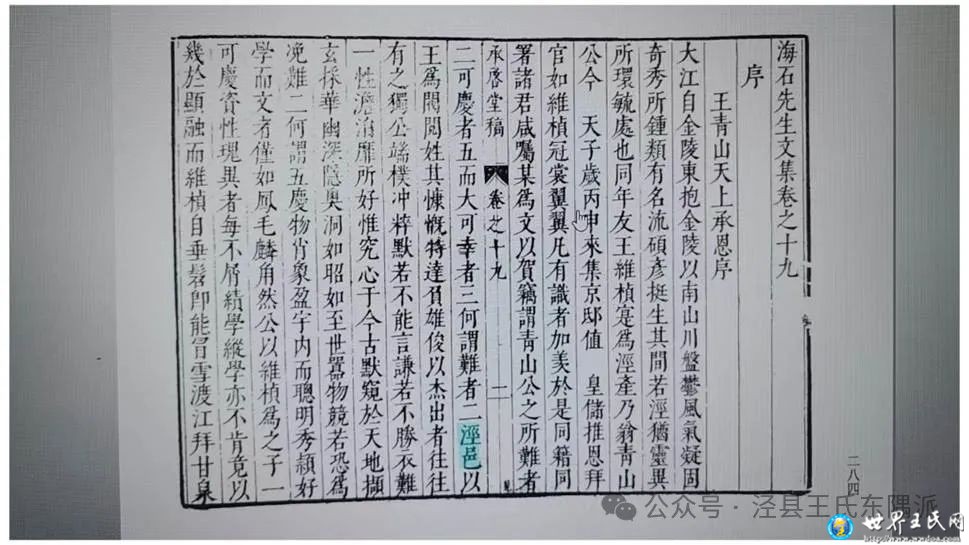 海石先生文集卷之十九
序
王青山天上承恩序
大江自金陵東抱金陵以南山川盤鬱風氣凝固
奇秀所鍾類有名流碩彥挺生其間若涇猶靈異
所環毓處也同年友王維楨寔爲涇產乃翁青山
公今 天子歲丙申來集京邸值 皇儲推恩拜
官如維楨冠裳翼翼凡有識者加美於是同籍同
署諸君咸囑某爲文以賀竊謂青山公之所難者
承啓堂稿 卷之十九 一
二可慶者五而大可幸者三何謂難者二涇邑以
王爲閥閱姓其慷慨特達負雄俊以杰出者往往
有之獨公端樸沖粹默若不能言謙若不勝衣難
一性澹泊靡所好惟究心于今古默窺於天地擷
玄採華幽深隱奧洞如昭如至世嚣物競若恐爲
浼難二何謂五慶物肖象盈宇内而聰明秀頴好
學而文者僅如鳳毛麟角然公以維楨爲之子一
可慶資性瑰異者每不屑績學縱學亦不肯竟以
幾於顯融而維楨自垂髫卽能冒雪渡江拜甘泉
二八四
公众号·泾县王氏东隅派
世界王氏网